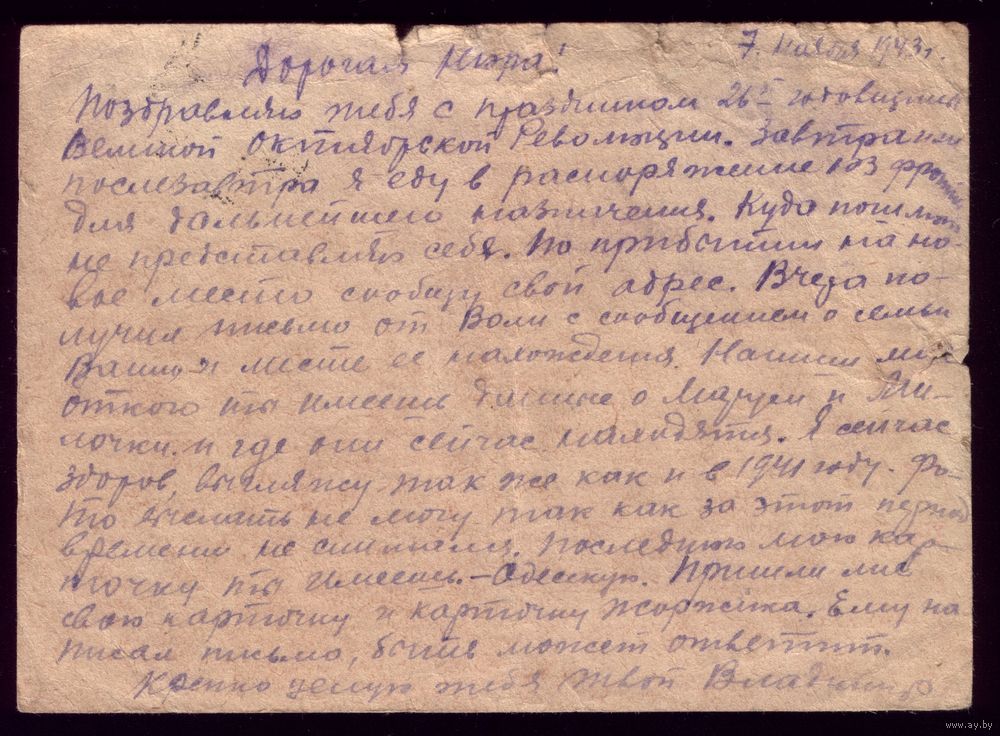 7 ноября 1943 г.
Дорогая Нюра!
Поздравляю тебя с праздником 26й годовщины
Великой Октябрьской Революции. Завтра или
послезавтра я еду в распоряжение юз фронта
для дальнейшего назначения. Куда пошлют
не представляю себя. По прибытии на но-
вое место сообщу свой адрес. Вчера по-
лучил письмо от Воли с сообщением о семьи
и месте ее нахождения. Напиши мне
откого ты имеешь данные о Маруси и Ми-
лочки и где они сейчас находятся. Я сейчас
здоров, выгляжу так же как и в 1941 году. Фо-
то выслать не могу так как за этот период
времени не снимался. Последнюю мою кар-
точку ты имеешь - Одесскую. Пришли мне
свою карточку и карточку Жоржика. Ему на
писал письмо, быть может ответит.
Крепко целую тебя твой Владимир
www.ay.by